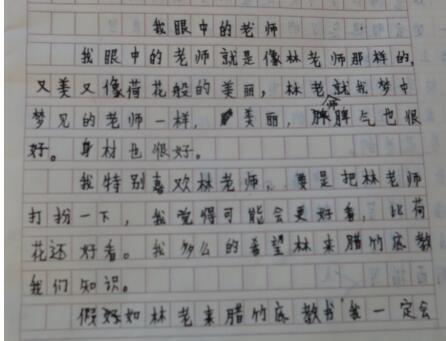 我眼中的老师
我眼中的老师就是像林老师那样的,
又美又像荷花般的美丽,林老师就我梦中
梦见的老师一样,美丽,脾气也很
好。身材也很好。
我特别喜欢林老师、要是把林老师
打扮一下,我觉得可能会更好看,比荷
花还好看。我多么的希望林来腊竹底教
我们知识。
假如林老来腊竹底教书我一定会